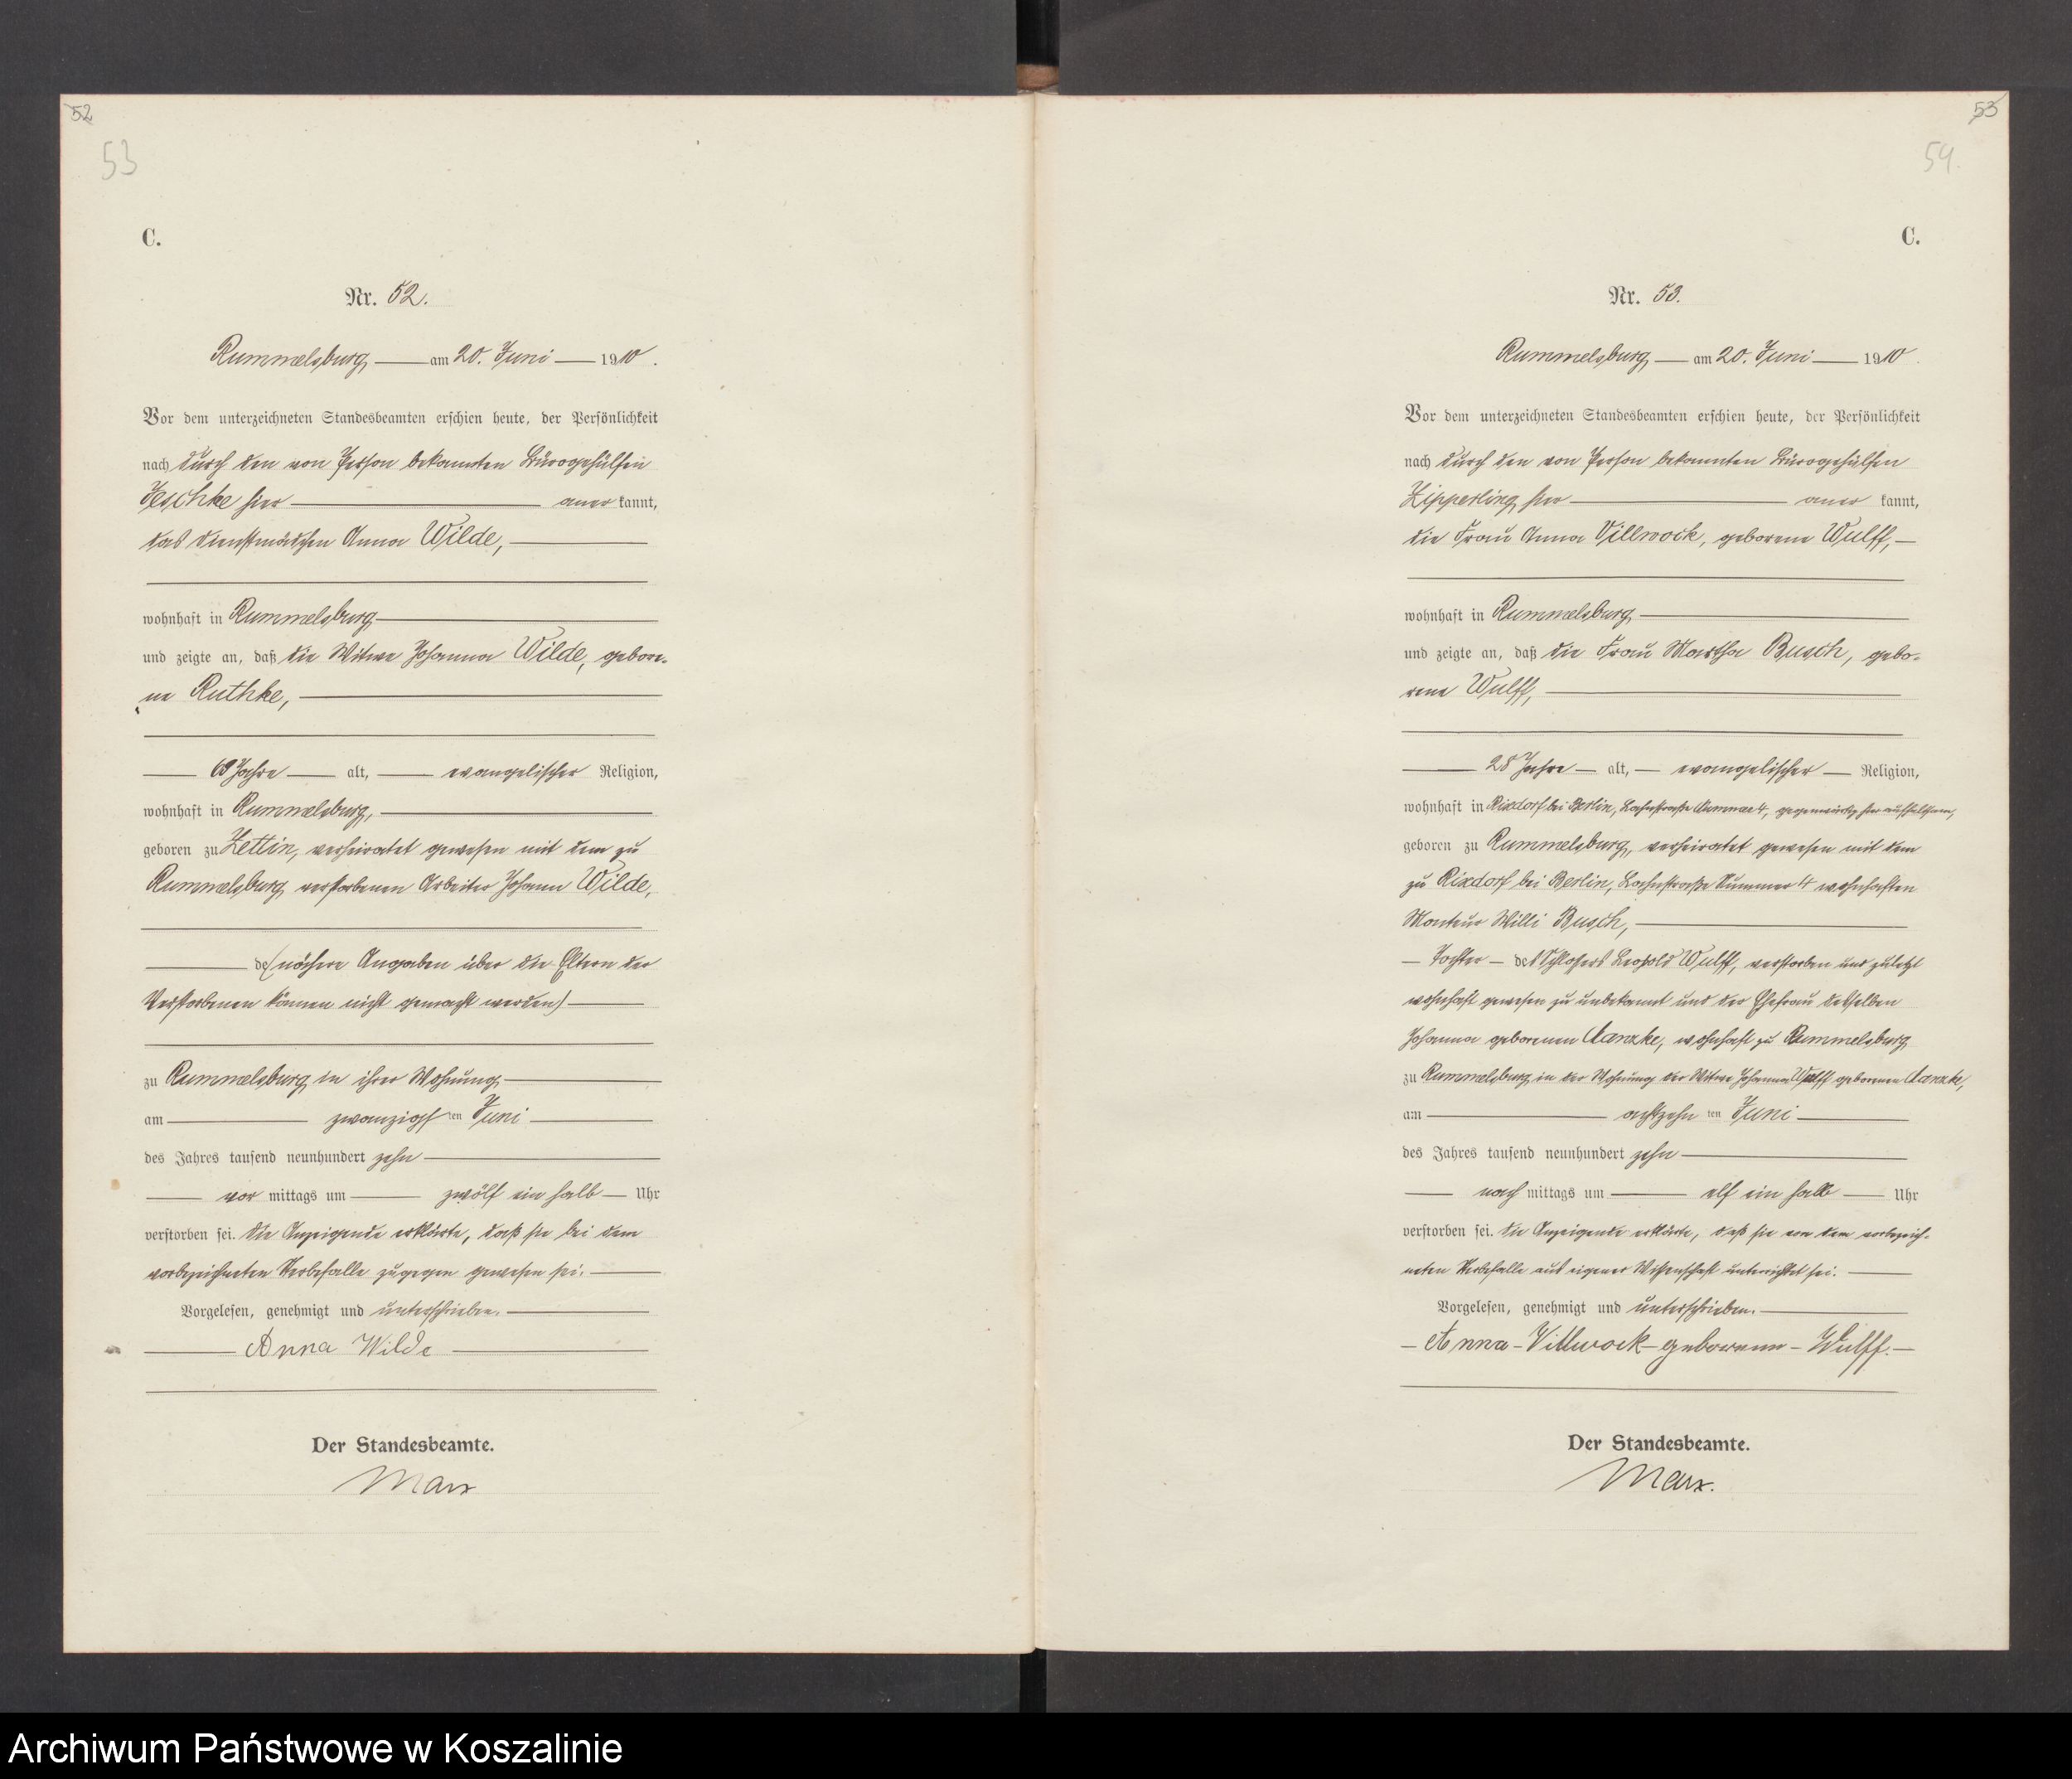 52
53
C.
Nr. 52.
Rummelsburg, am 20. Juni 1910.
Vor dem unterzeichneten Standesbeamten erschien heute, der Persönlichkeit
nach durch den von Person bekannten Bürogehülfen
Jeschke hier anerkannt,
das Dienstmädchen Anna Wilde,
wohnhaft in Rummelsburg
und zeigte an, daß die Witwe Johanna Wilde, gebore-
ne Ruthke,
Jahre alt, evangelischer Religion,
wohnhaft in Rummelsburg,
geboren zu Zettin, verheiratet gewesen mit dem zu
Rummelsburg verstorbenen Arbeiter Johann Wilde,
de (nähere Angaben über die Eltern der
Verstorbenen können nicht gemacht werden)
zu Rummelsburg in ihrer Wohnung
am zwanzigsten Juni
des Jahres tausend neunhundert zehn
vormittags um zwölf ein halb Uhr
verstorben sei. Die Anzeigende erklärte, daß sie bei dem
vorbezeichneten Sterbefalle zugegen gewesen sei.
Vorgelesen, genehmigt und unterschrieben.
Anna Wilde
Der Standesbeamte.
Marx
53
54.
C.
Nr. 53.
Rummelsburg, am 20. Juni 1910.
Vor dem unterzeichneten Standesbeamten erschien heute, der Persönlichkeit
nach durch den von Person bekannten Bürogehülfen
Zipperling hier anerkannt,
die Frau Anna Villwock, geborene Wulff,
wohnhaft in Rummelsburg
und zeigte an, daß die Frau Martha Busch, gebo-
rene Wulff,
28 Jahre alt, evangelischer Religion,
wohnhaft in Rixdorf bei Berlin, Lahnstraße Nummer 4, gegenwärtig hier aufhaltsam,
geboren zu Rummelsburg, verheiratet gewesen mit dem
zu Rixdorf bei Berlin, Lahnstraße Nummer 4 wohnhaften
Monteur Willi Busch,
Tochter des Schlossers Leopold Wulff, verstorben und zuletzt
wohnhaft gewesen zu unbekannt und der Ehefrau desselben
Johanna geborenen, wohnhaft zu Rummelsburg
zu Rummelsburg in der Wohnung der Witwe Johanna Wulff geborenen
am achtzehnten Juni
des Jahres tausend neunhundert zehn
nachmittags um elf ein halb Uhr
verstorben sei. Die Anzeigende erklärte, daß sie von dem vorbezeich-
neten Sterbefalle aus eigener Wissenschaft unterrichtet sei.
Vorgelesen, genehmigt und unterschrieben.
Anna Villwock geborene Wulff.
Der Standesbeamte.
Marx.
Archiwum Państwowe w Koszalinie